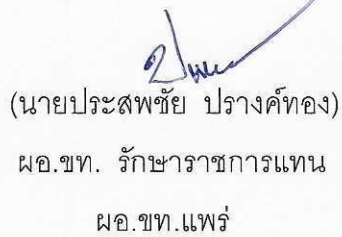 (นายประสพชัย ปรางค์ทอง)
ผอ.ขท. รักษาราชการแทน
ผอ.ขท.แพร่